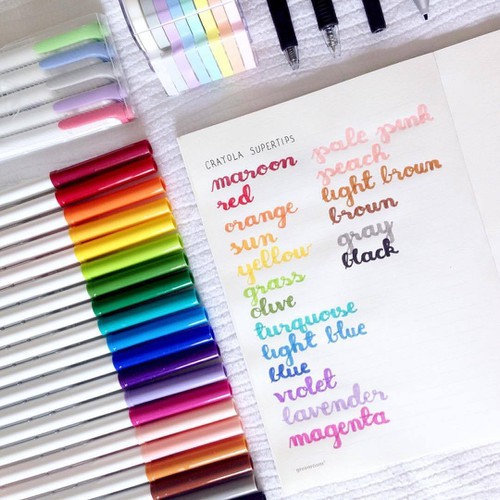 CRAYOLA SUPERTIPS
maroon
red
orange
sun
yellow
grass
olive
turquoise
light blue
blue
violet
lavender
magenta
pale pink
peach
light brown
brown
gray
black